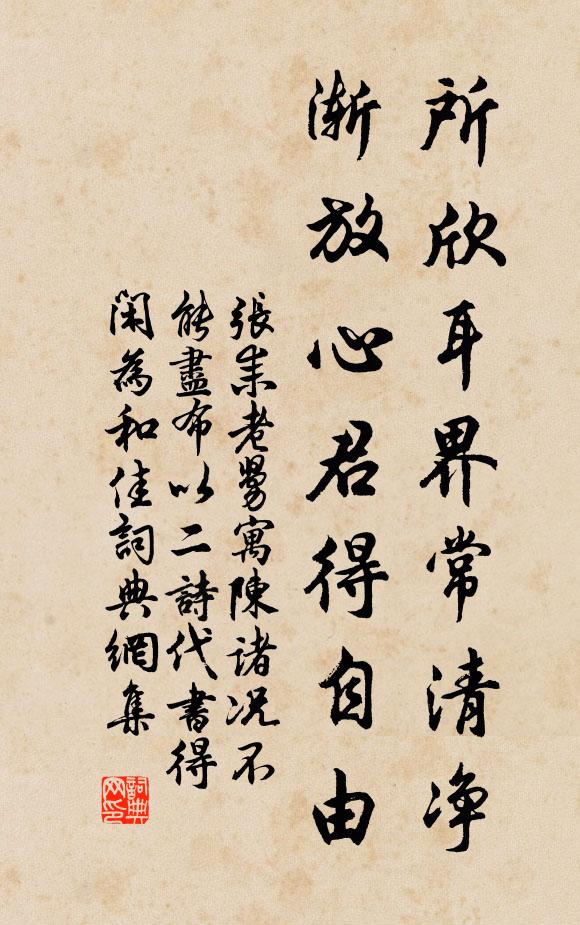 所欣耳界常清净
漸放心君得自由
張耒老舅寓陳諸况不
能盡布以二詩代書得
閑為和佳詞典網集
詞典网印